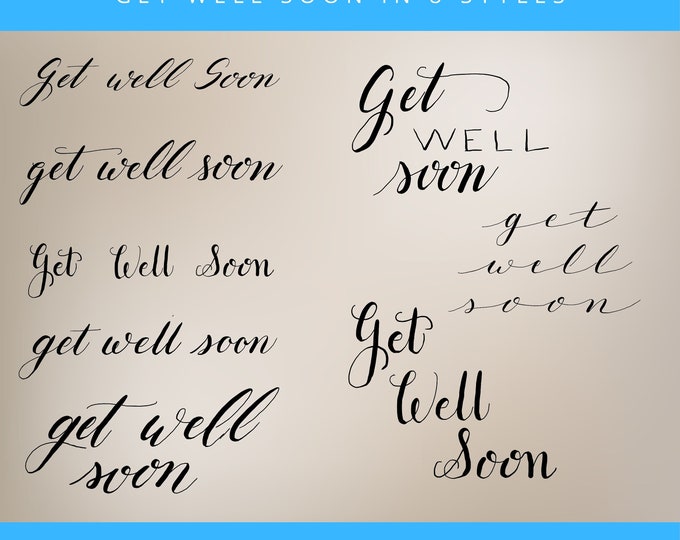 GET WELL SOON IN 8 STYLES
Get well Soon
get well soon
Get Well Soon
get well soon
get well
soon
Get
WELL
soon
get
well
soon
Get
Well
Soon